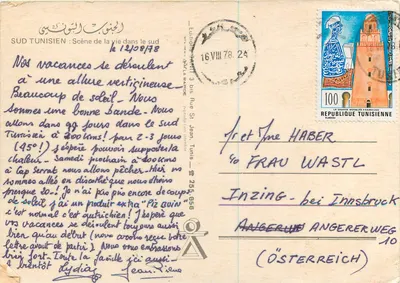 الجنوب التونسي
SUD TUNISIEN : Scène de la vie dans le sud
le 12/08/78
Nos vacances se déroulent
à une allure vertigineuse -
Beaucoup de soleil - Nous
sommes une bonne bande - Nous
allons dans jours dans le sud
Tunisien à pour 2-3 jours
(45°!) J'espère pouvoir supporter la
chaleur - Samedi prochain à
Cap Serrat nous allons pêcher - 
sommes allés en discothèque nous
presque 20 - ! Je n'ai pas encore de coups
de soleil, j'ai un produit extra - 
c'est normal c'est autrichien ! J'espère que
vos vacances se déroulent toujours aussi
bien qu'au début (nous avons reçu votre
lettre avant de partir). Nous vous embrassons
bien fort. Toute la famille aussi -
à bientôt Lydia
16 VIII 78 24
100
REPUBLIQUE TUNISIENNE
Mr et Mme HABER
c/o FRAU WASTL
INZING - bei Innsbruck
ANGERERWEG
10
(ÖSTERREICH)